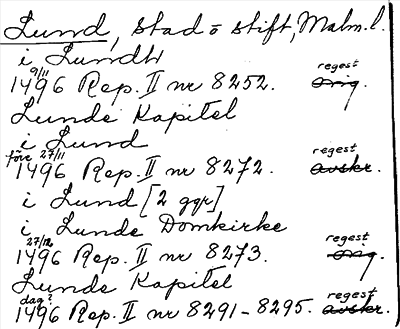 Lund, stad o stift, Malm. l.
i Lundh
9/11 regest
1496 Rep. II nr 8252. orig.
Lunde Kapitel
i Lund
före 27/11 regest
1496 Rep. II nr 8272. avskr.
i Lund [2 ggr]
i Lunde Domkirke
27/12 regest
1496 Rep. II nr 8273. orig.
Lunde Kapitel
dag? regest
1496 Rep. II nr 8291-8295. avskr.